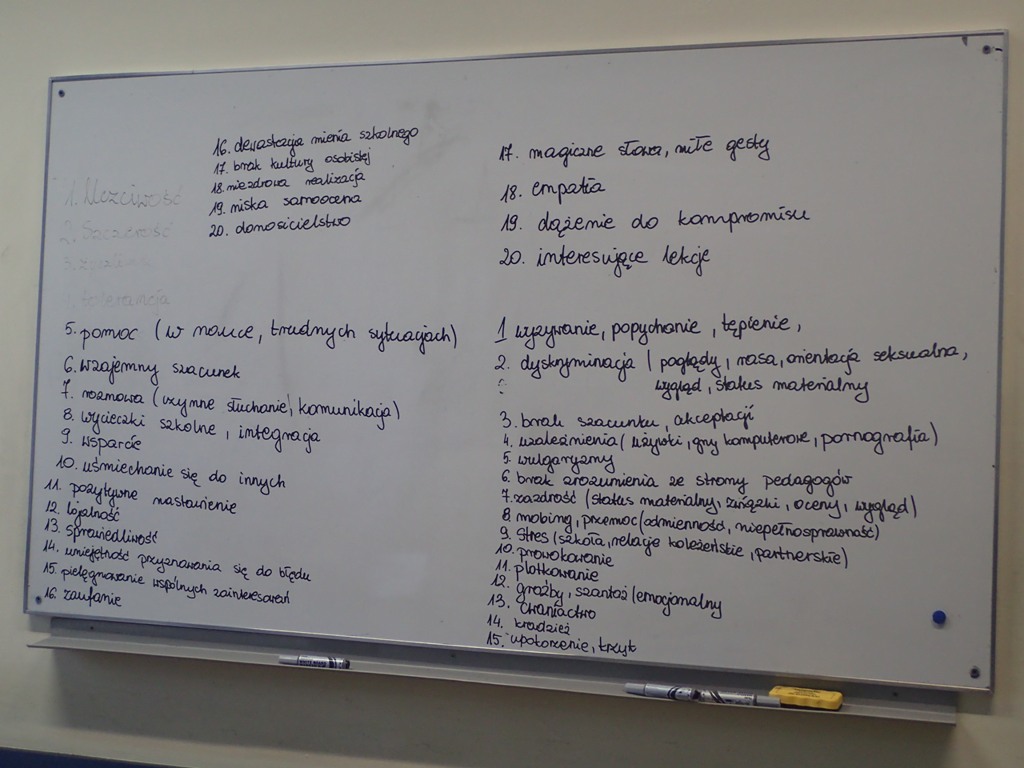 16. dewastacja mienia szkolnego
17. brak kultury osobistej
18. niezdrowa realizacja
19. niska samoocena
20. donosicielstwo
1. Uczciwość
2. Szczerość
4. tolerancja
5. pomoc (w nauce, trudnych sytuacjach)
6. wzajemny szacunek
7. rozmowa (czynne słuchanie, komunikacja)
8. wycieczki szkolne, integracja
9. wsparcie
10. uśmiechanie się do innych
11. pozytywne nastawienie
12. lojalność
13. sprawiedliwość
14. umiejętność przyznawania się do błędu
15. pielęgnowanie wspólnych zainteresowań
16. zaufanie
17. magiczne słowa, miłe gesty
18. empatia
19. dążenie do kompromisu
20. interesujące lekcje
1 wyzywanie, popychanie, tępienie,
2. dyskryminacja (poglądy, rasa, orientacja seksualna,
wygląd, status materialny
3. brak szacunku, akceptacji
4. uzależnienia (używki, gry komputerowe, pornografia)
5. wulgaryzmy
6. brak zrozumienia ze strony pedagogów
7. zazdrość (status materialny, związki, oceny, wygląd)
8. mobing, przemoc (odmienność, niepełnosprawność)
9. stres (szkoła, relacje koleżeńskie, partnerskie)
10. prowokowanie
11. plotkowanie
12. groźby, szantaż (emocjonalny
13. cwaniactwo
14. kradzież
15. upokorzenie,